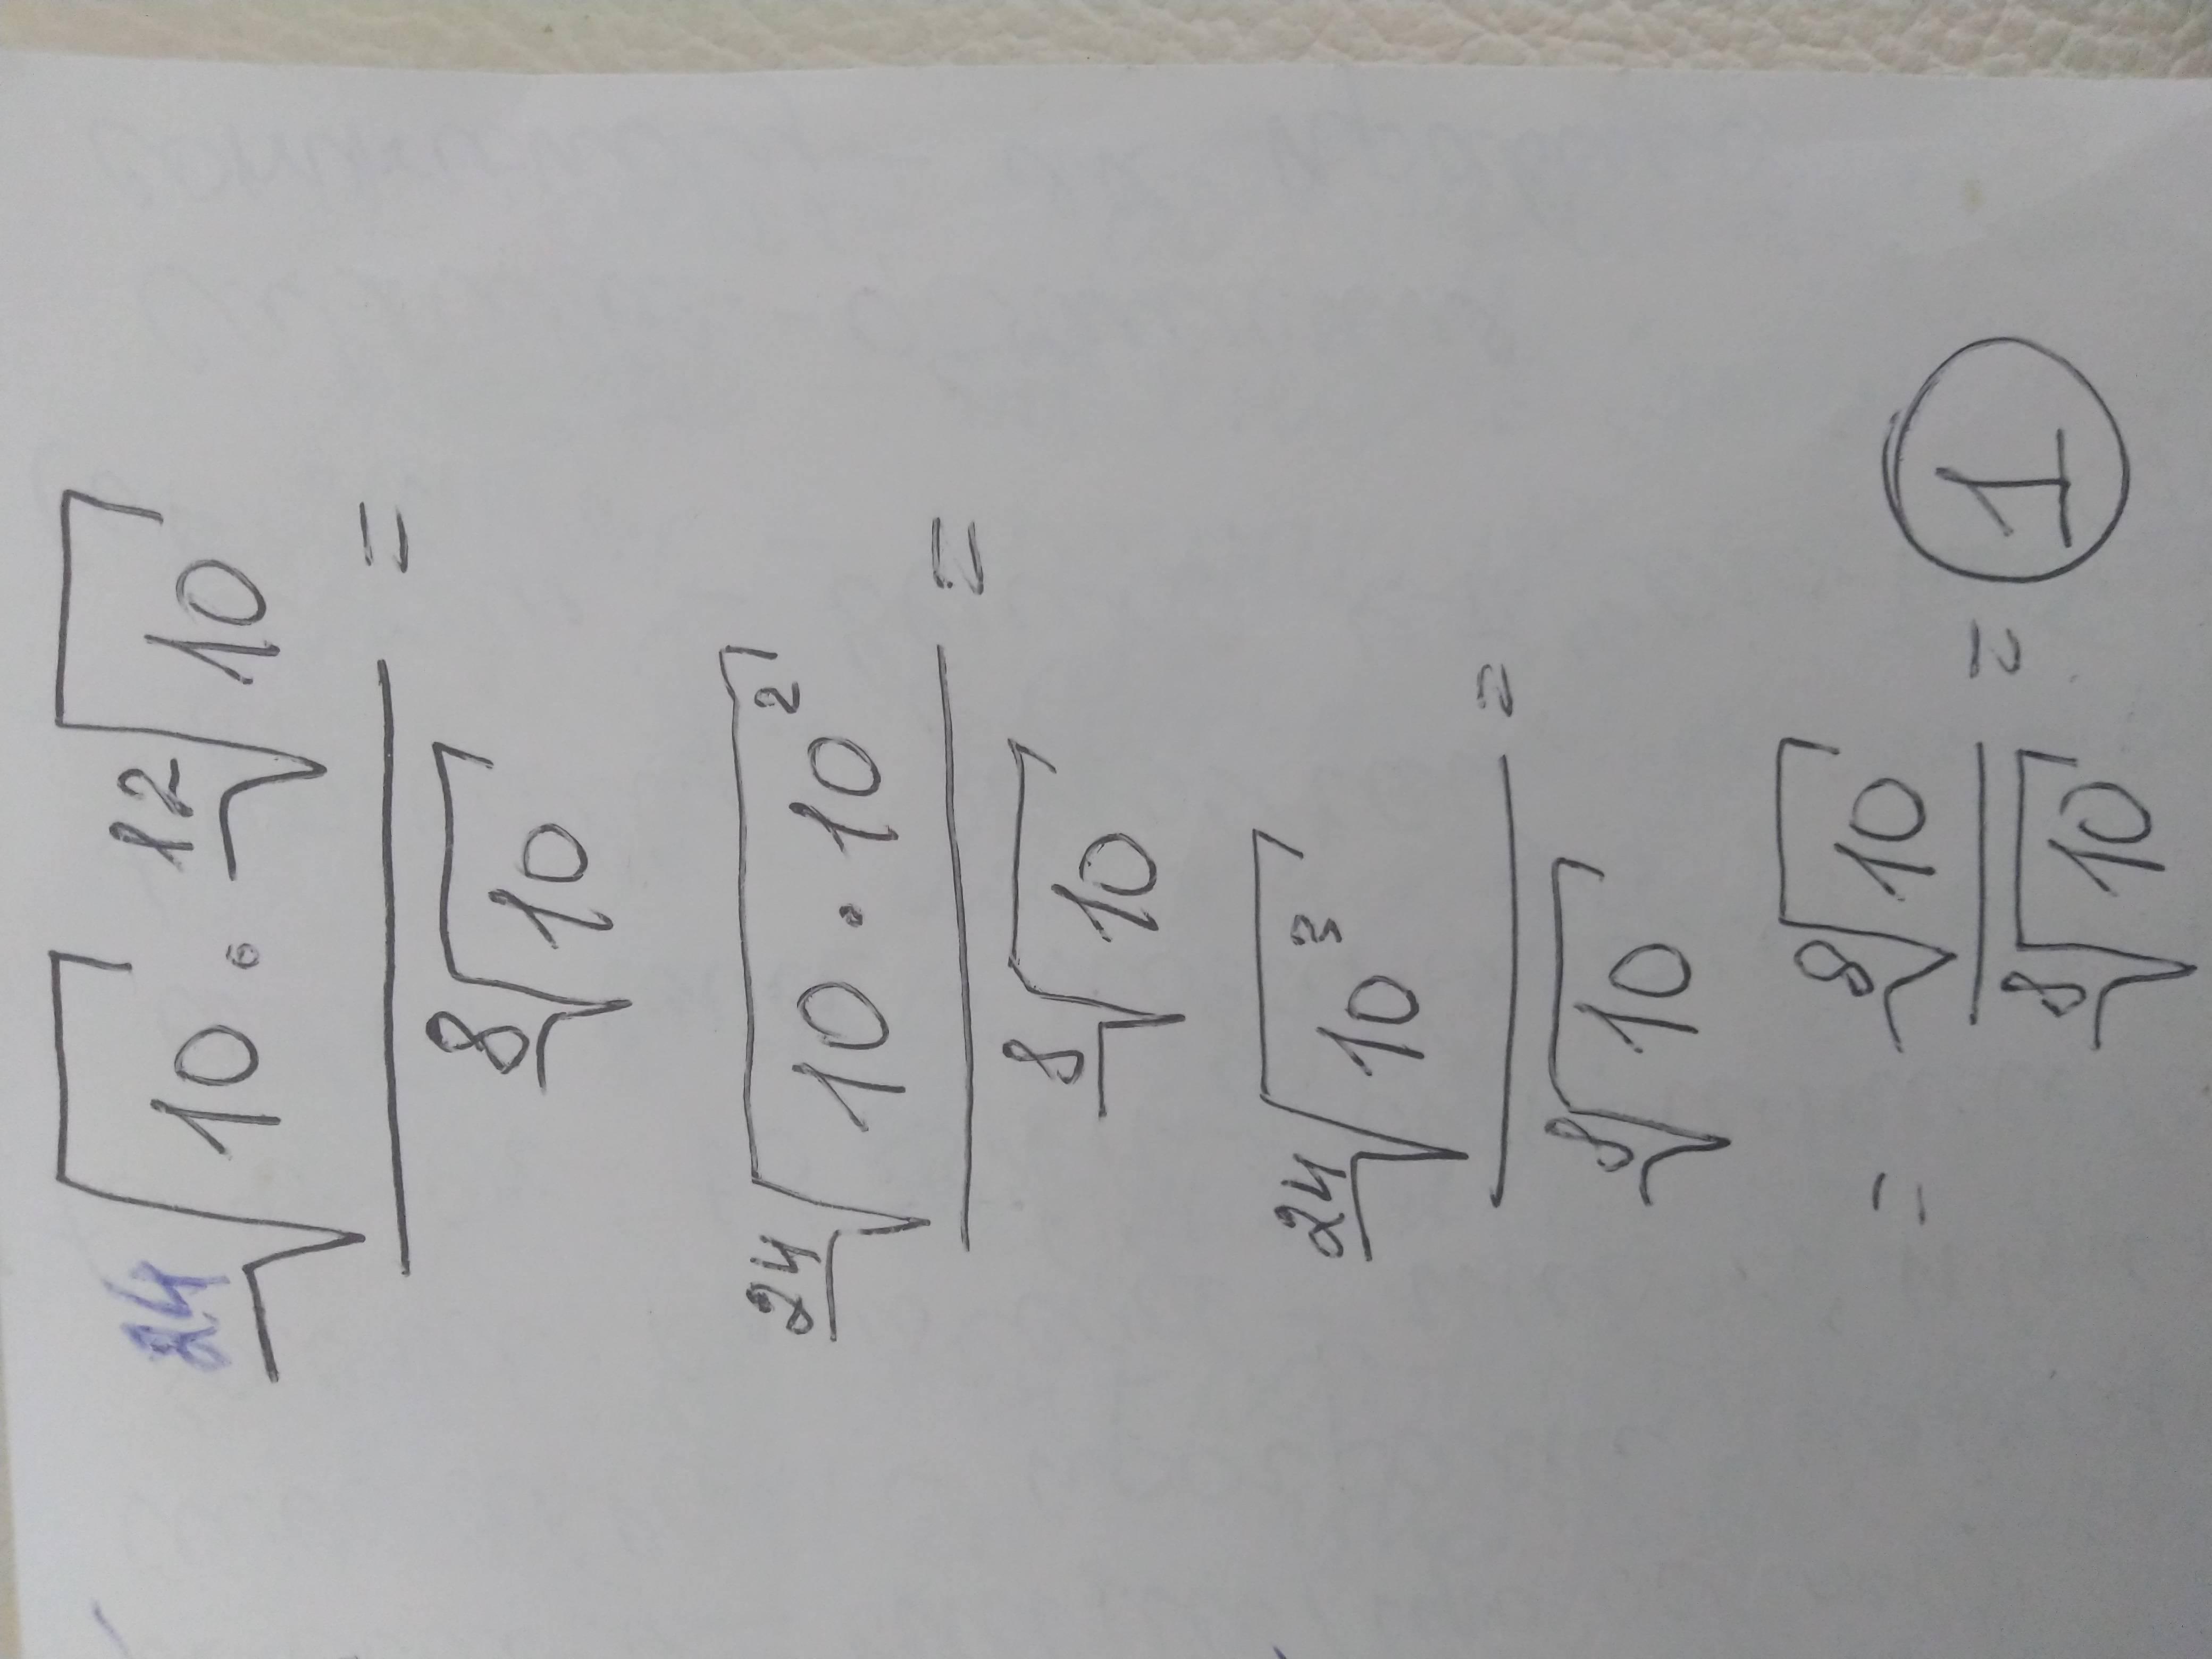 ²⁴√10 · ¹²√10 / ⁸√10 =
²⁴√(10 · 10²) / ⁸√10 =
²⁴√(10³) / ⁸√10 =
= ⁸√10 / ⁸√10 = 1